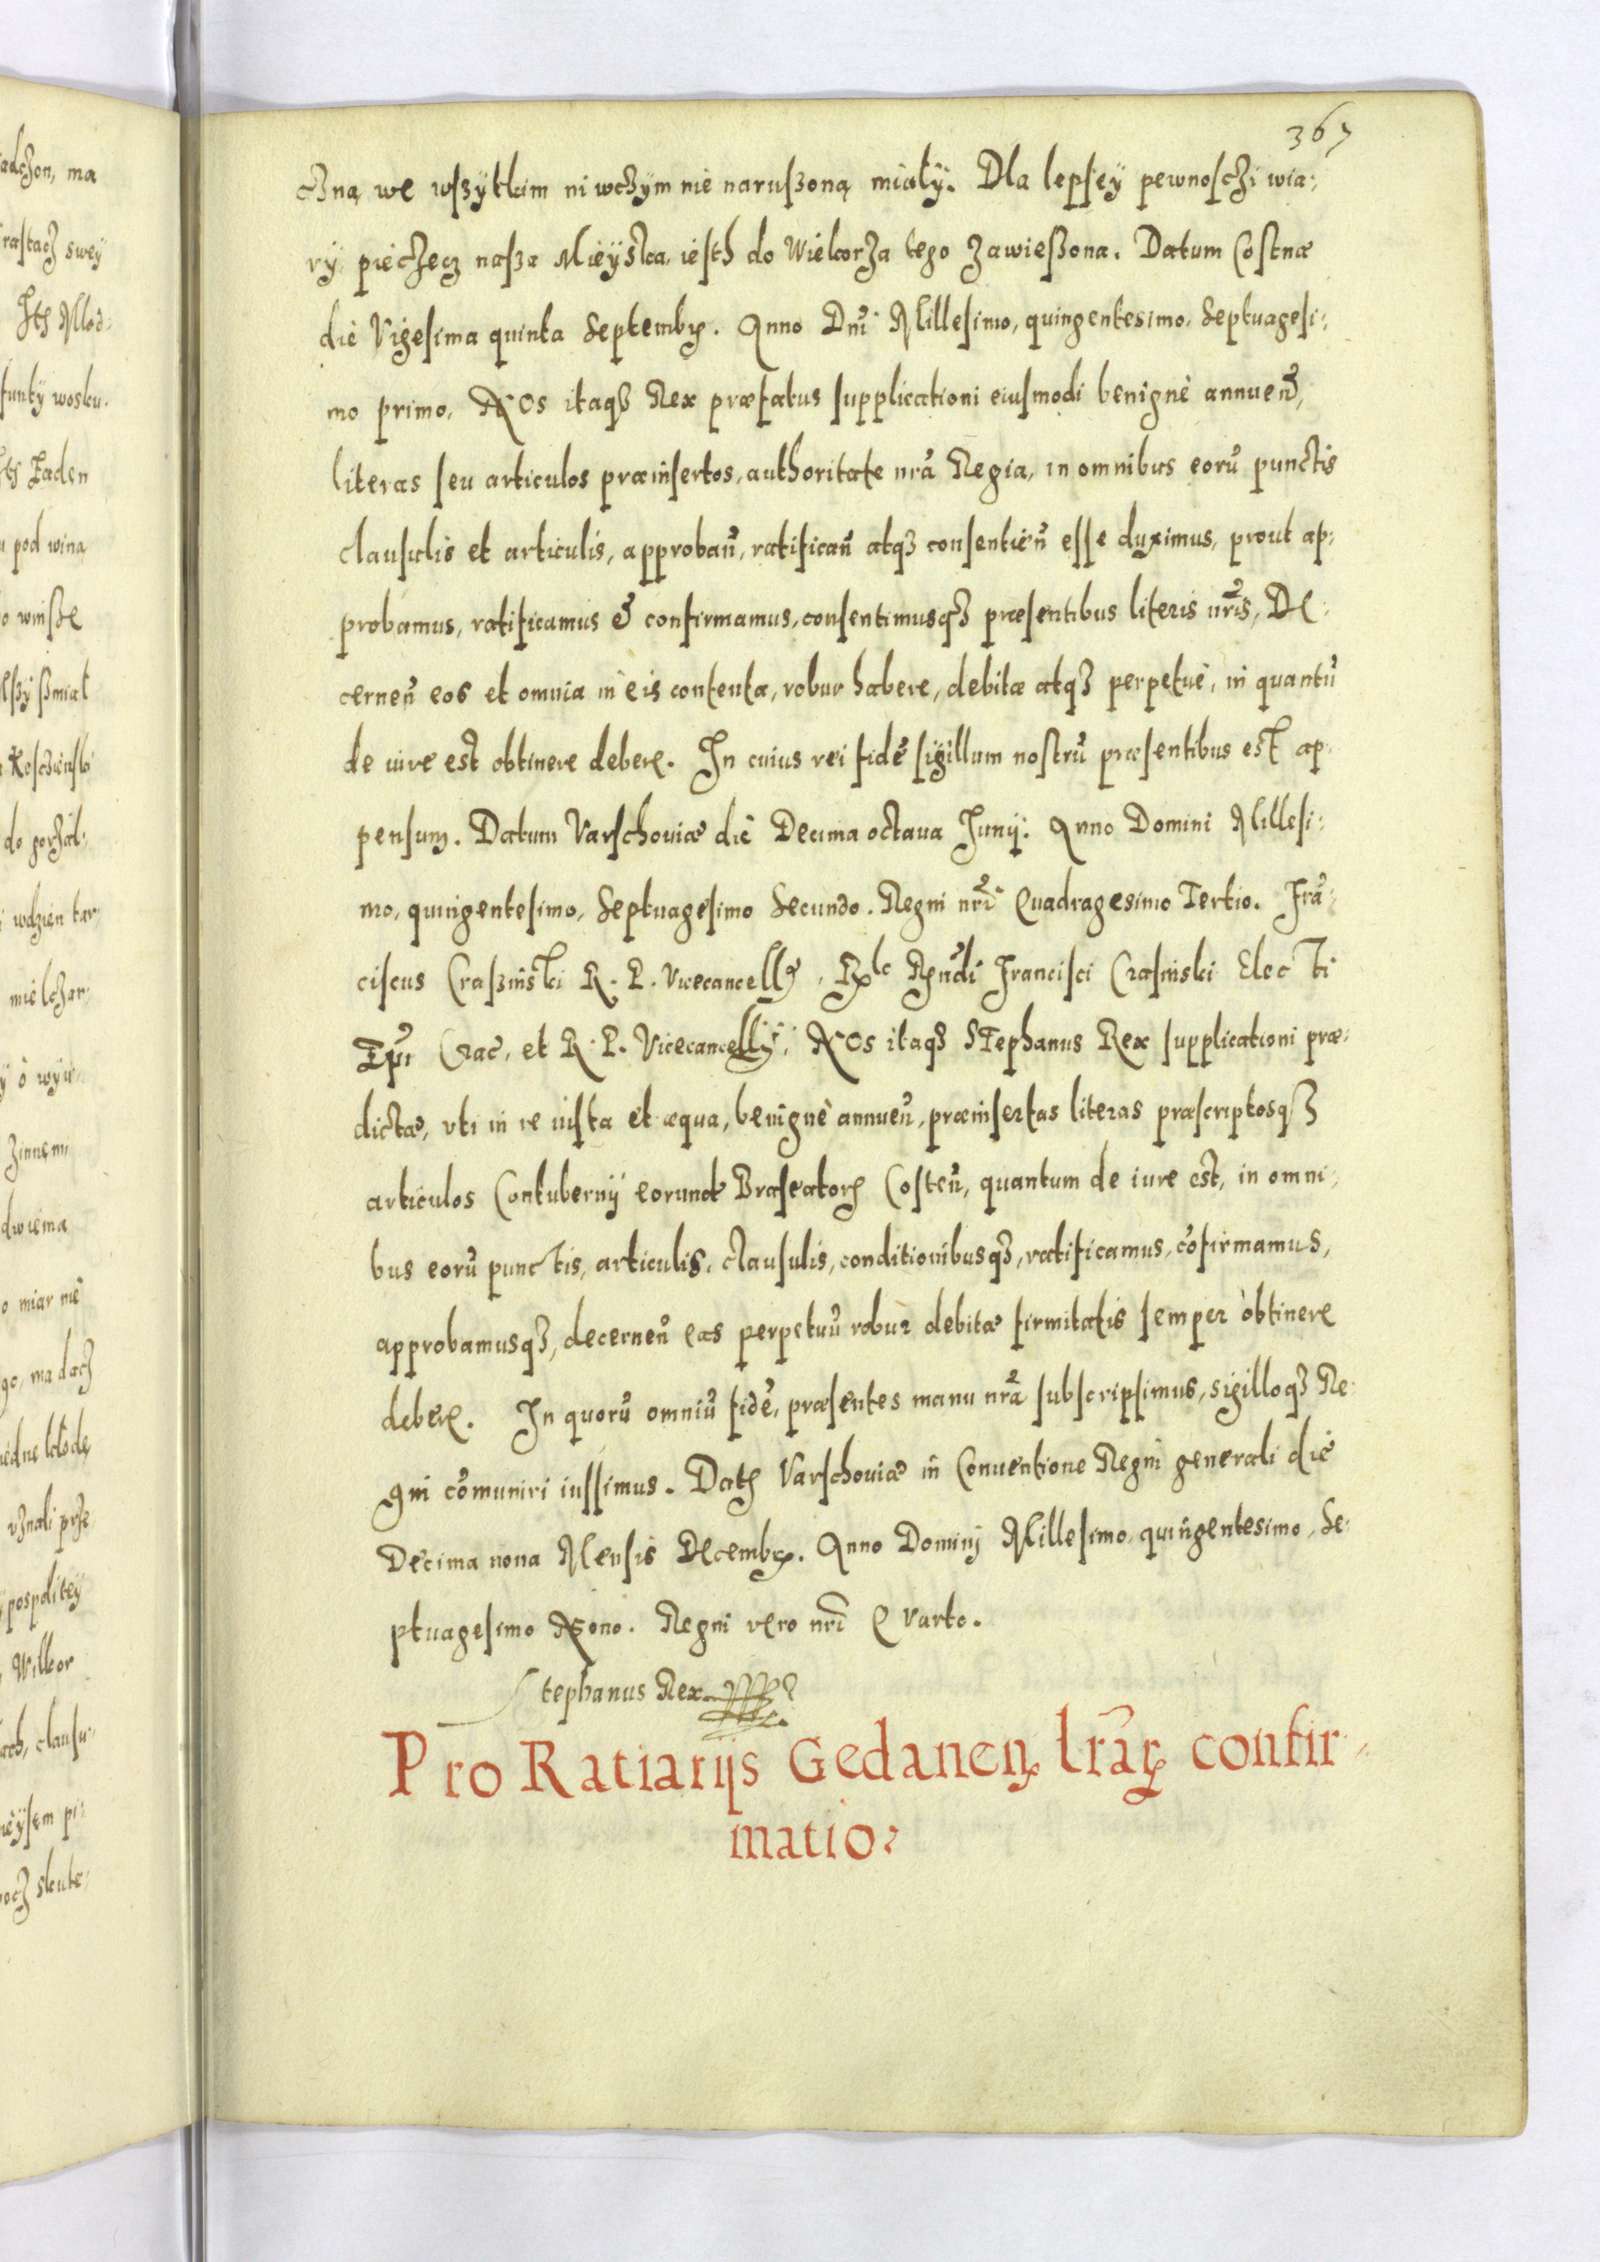 367
cżną we wszÿtkim ni wcżym nie naruszoną miałÿ. Dla lepseÿ pewnosczi wia:
rÿ piecżecz nasza Mieÿska iesth do Wielkorża tego zawieszona. Datum Costnæ
die Vigesima quinta Septembr. Anno Dni Millesimo, quingentesimo, Septuagesi:
mo primo, NOs itaq3 Rex præfatus supplicationi eiusmodi benignè annuen̄,
literas seu articulos præinsertos, authoritate nrā Regia, in omnibus eorū punctis
clausulis et articulis, approban̄, ratifican̄ atq3 consentien̄ esse duximus, prout ap:
probamus, ratificamus & confirmamus, consentimusq3 præsentibus literis nrīs, De:
cernen̄ eos et omnia in eis contenta, robur habere, debitæ atq3 perpetuè, in quantū
de iure est obtinere debere. In cuius rei fidē sigillum nostrū præsentibus est ap:
pensum. Datum Varschoviæ die Decima octaua Junÿ. Anno Domini Millesi:
mo, quingentesimo, Septuagesimo Secundo. Regni nrī Quadragesimo Tertio. Frā:
ciscus Craszinski R. P. Vicecancell. Rlc Rndi Francisci Crasinski Elec Ti
Epi Crac, et R. P. Vicecancellÿ, NOs itaq3 STephanus Rex supplicationi præ:
dictæ, vti in re iusta et æqua, benignè annuen̄, præinsertas literas præscriptosq3
articulos Contubernÿ eorund Braseator Costen̄, quantum de iure est, in omni:
bus eorū punc Tis, articulis, clausulis, conditionibusq3, ratificamus, cōfirmamus,
approbamusq3, decernen̄ eas perpetuū robur debitæ firmitatis semper obtinere
debere. In quorū omniū fidē, præsentes manu nrā subscripsimus, sigilloq3 Re:
gni cōmuniri iussimus. Dat Varschoviæ in Conuentione Regni generali die
Decima nona Mensis Decembr. Anno Dominÿ Millesimo, quingentesimo, Se:
ptuagesimo Nono. Regni vero nrī Quarto.
Stephanus Rex
Pro Ratiarijs Gedanen lrār confir:
matio